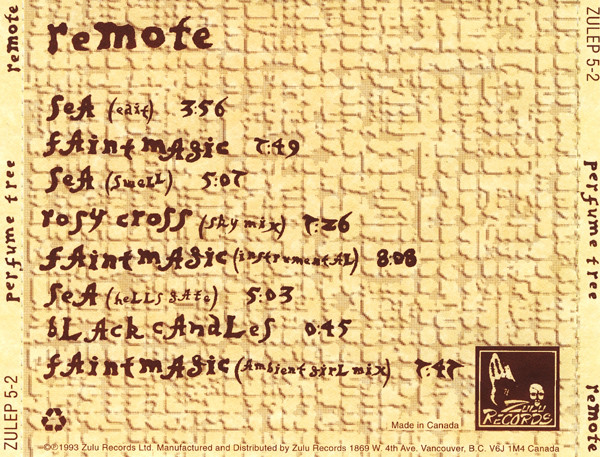 remote
sea (edit) 3:56
faint magic 7:49
sea (swell) 5:07
rosy cross (sky mix) 7:26
faint magic (instrumental) 8:08
sea (hells gate) 5:03
black candles 0:45
faint magic (ambient girl mix) 7:47
ZULU
RECORDS
Made in Canada
©℗1993 Zulu Records Ltd. Manufactured and Distributed by Zulu Records 1869 W. 4th Ave. Vancouver, B.C. V6J 1M4 Canada
ZULEP 5-2 perfume tree remote
ZULEP 5-2 perfume tree remote